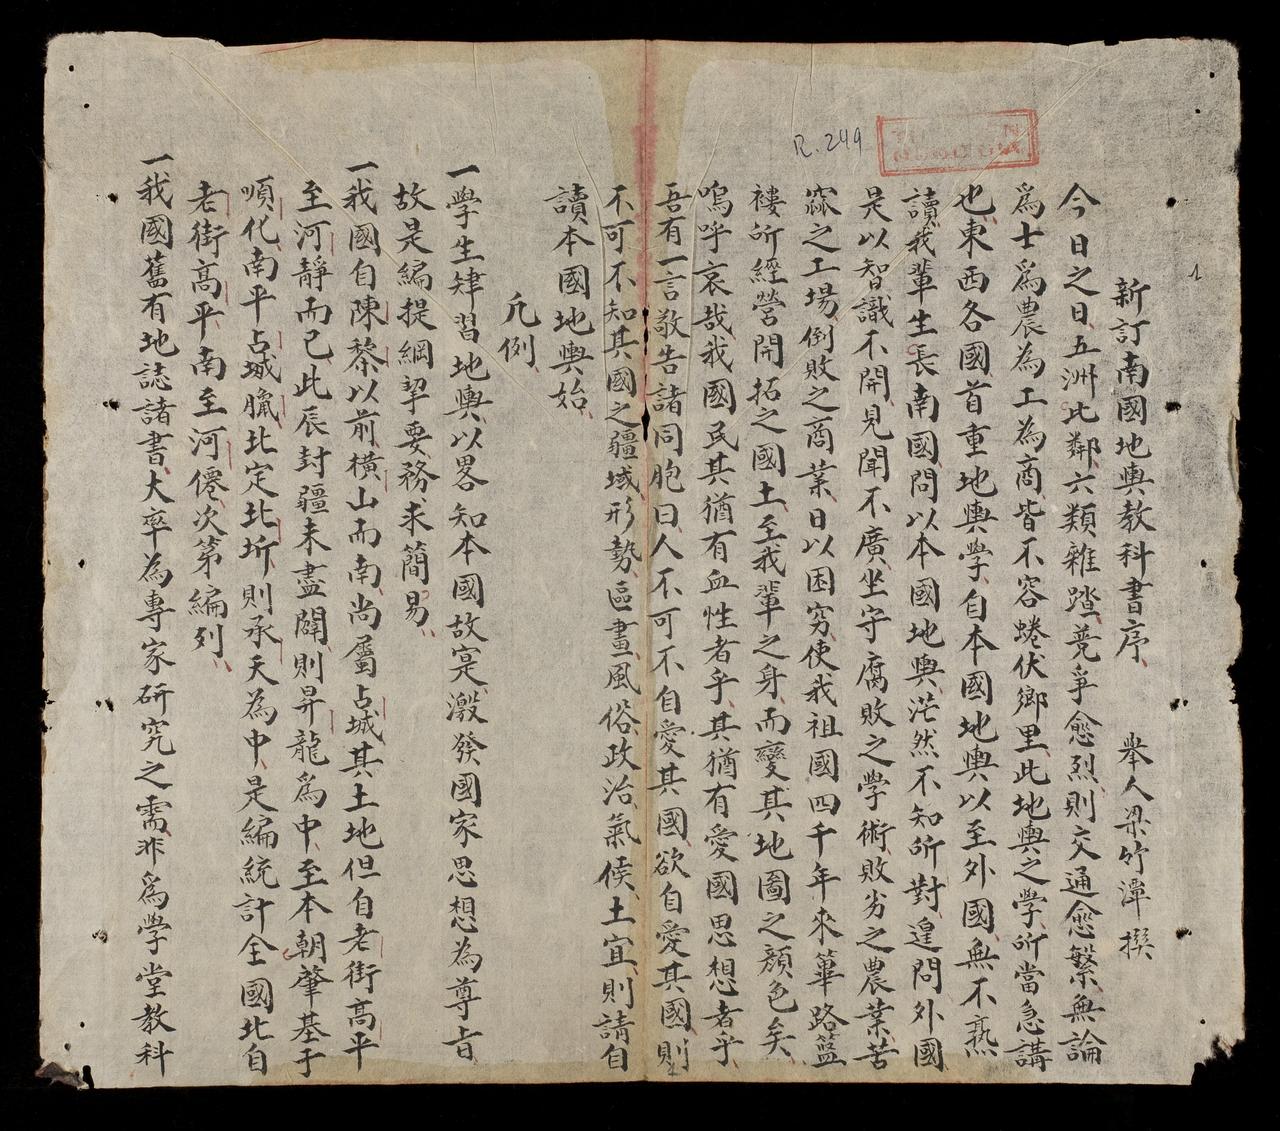 R. 249
1
新訂南國地輿教科書序 舉人梁竹潭撰
今日之日五洲比鄰六類雜踏競爭愈烈則交通愈繁無論
爲士爲農為工為商皆不容蜷伏鄉里此地輿之學所當急講
也東西各國首重地輿學自本國地輿以至外國無不熟
讀我輩生長南國問以本國地輿茫然不知所對遑問外國
是以智識不開見聞不廣坐守腐敗之學術敗劣之農業苦
窳之工場倒敗之商業日以困窮使我祖國四千年來篳路籃
褸所經營開拓之國土至我輩之身而變其地圖之顏色矣
嗚呼哀哉我國民其猶有血性者乎其猶有愛國思想者乎
吾有一言敬告諸同胞曰人不可不自愛其國欲自愛其國則
不可不知其國之疆域形勢區畫風俗政治氣候土宜則請自
讀本國地輿始
凡例
一學生肄習地輿以畧知本國故寔激發國家思想為尊旨
故是編提綱挈要務求簡易
一我國自陳黎以前橫山而南尚屬占城其土地但自老街高平
至河靜而已此辰封疆未盡闢則昇龍爲中至本朝肇基于
順化南平占城臘北定北圻則承天為中是編統計全國北自
老街高平南至河僊次第編列
一我國舊有地誌諸書大率為專家研究之需非爲學堂教科